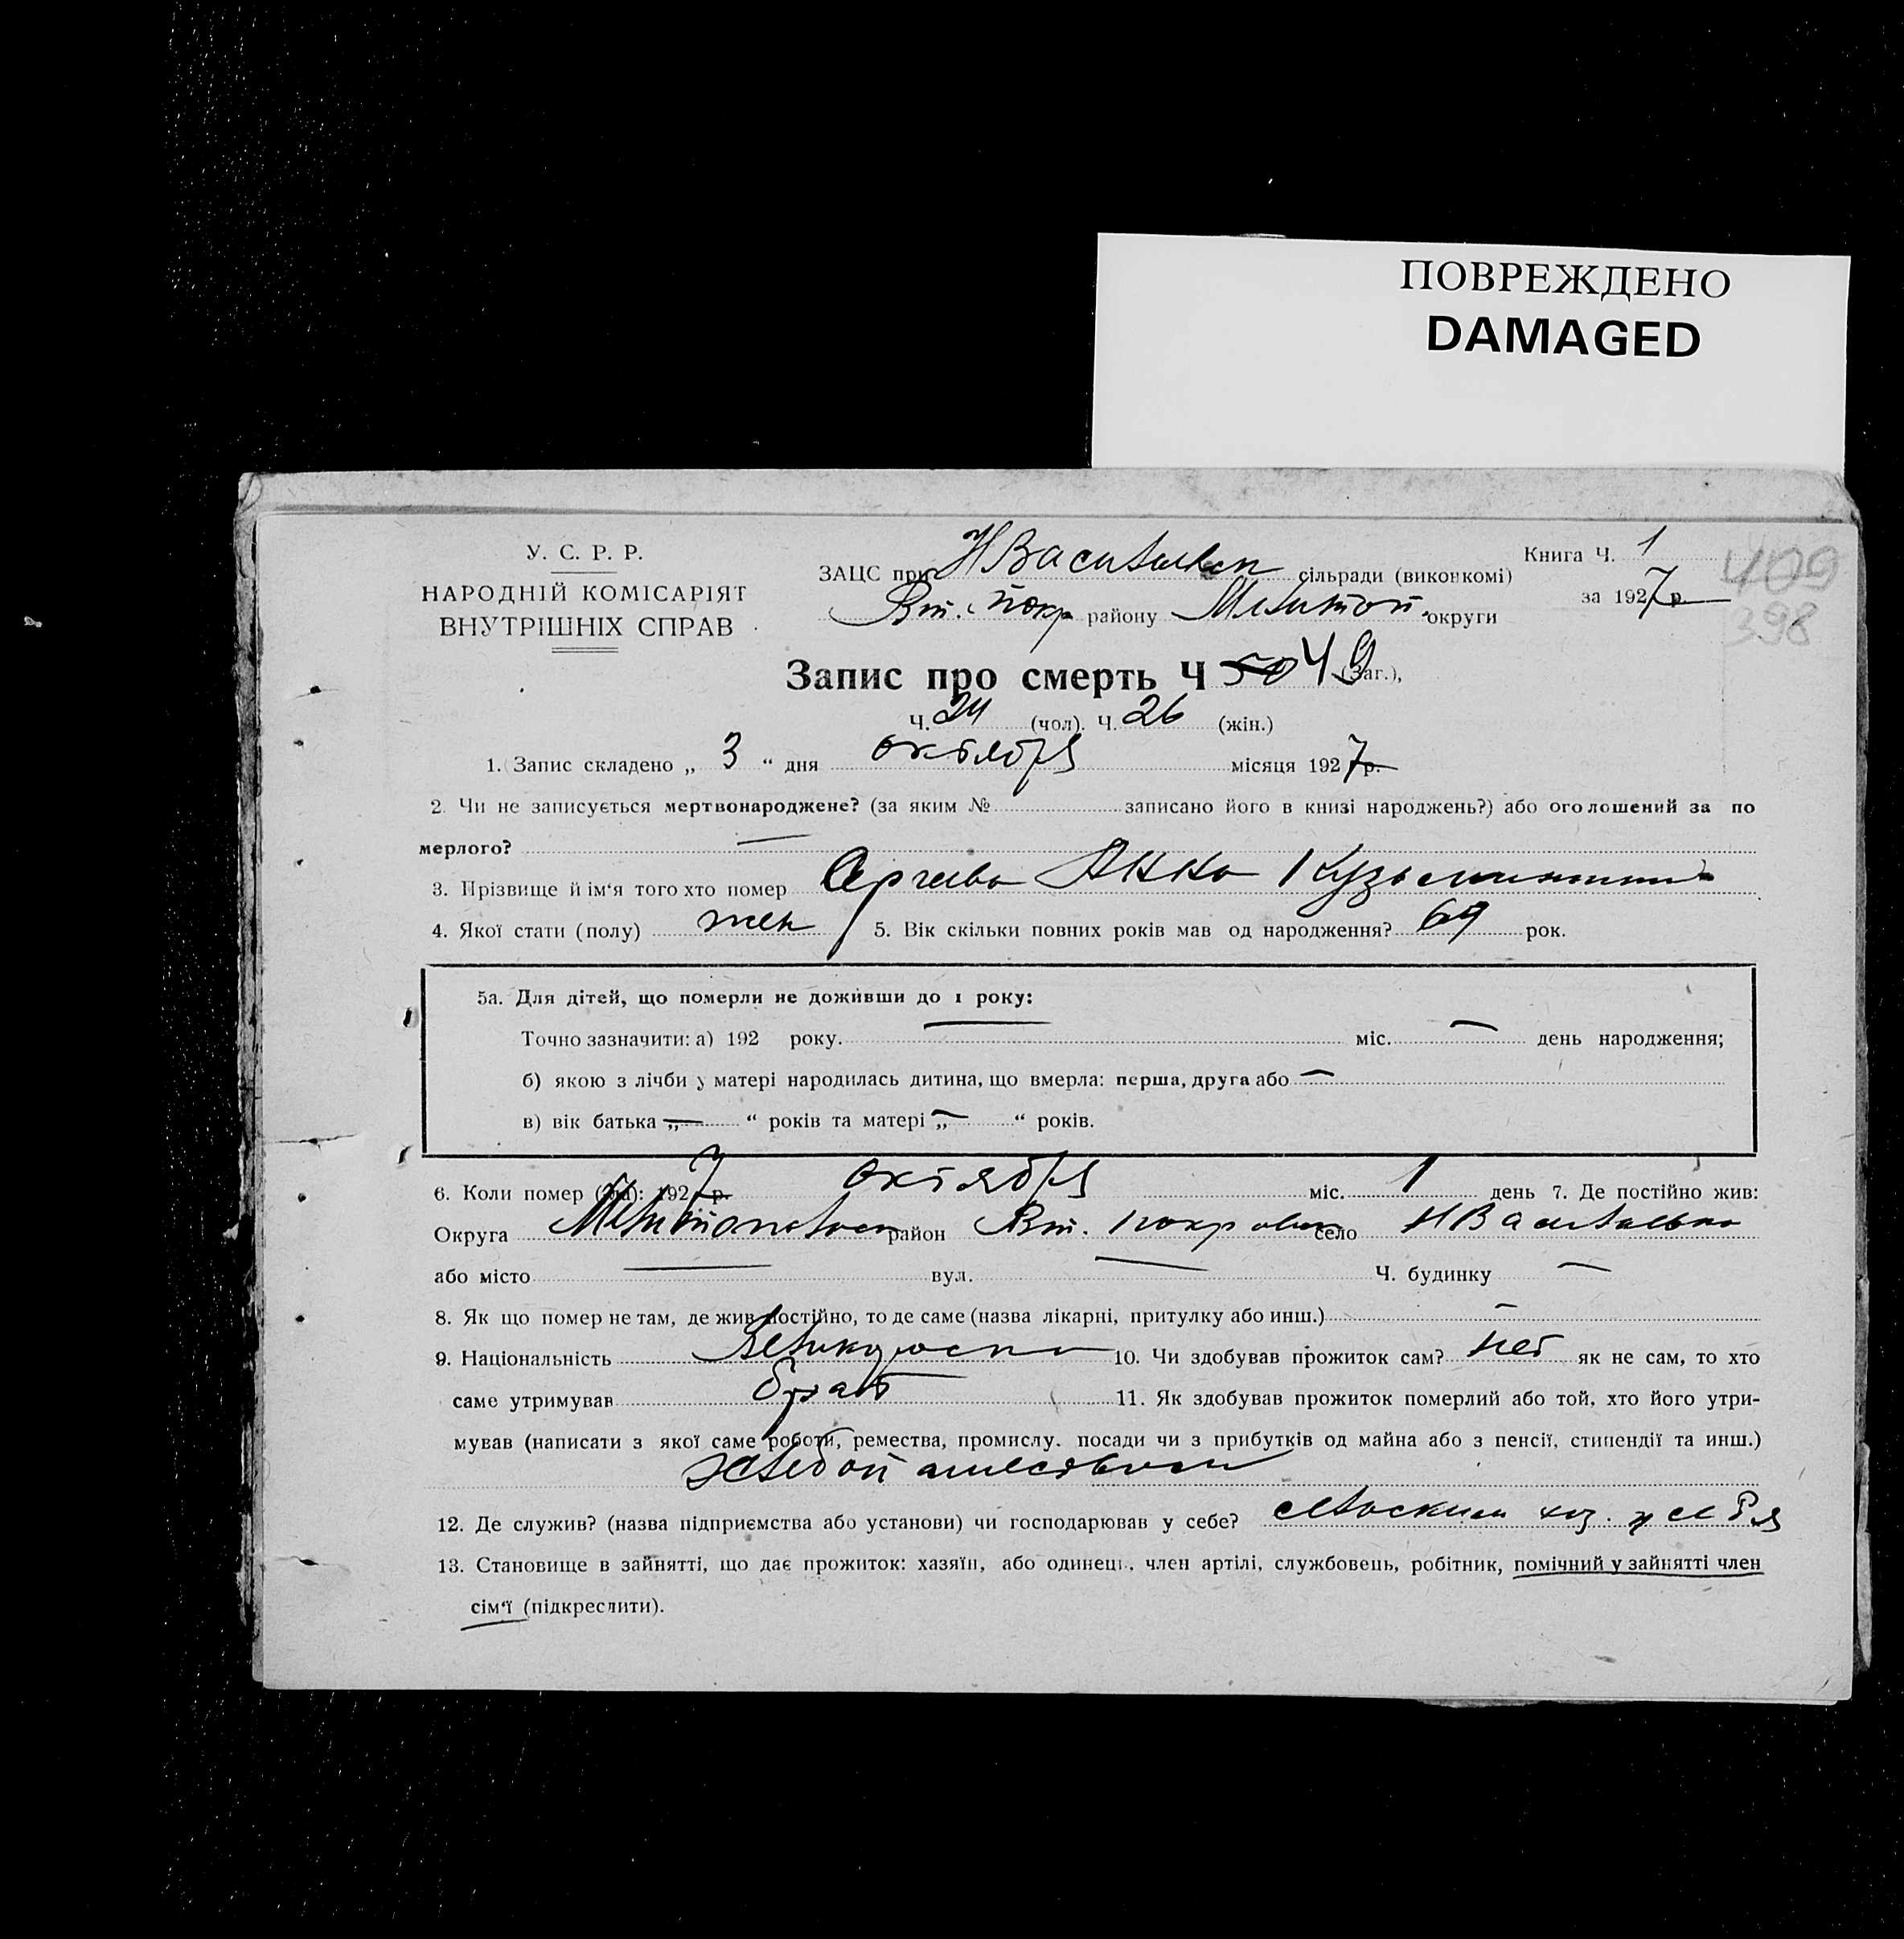 ПОВРЕЖДЕНО
DAMAGED
У. С. Р. Р.
НАРОДНІЙ КОМІСАРІЯТ
ВНУТРІШНІХ СПРАВ
ЗАЦС при НВасильевск сільради (виконкомі)
Вт. Покр району Мелитоп. округи
Книга Ч. 1
за 1927 р.
409
398
Запис про смерть Ч 50 49 (заг.),
Ч. 24 (чол). Ч. 26 (жін.)
1. Запис складено „ 3 “ дня октября місяця 1927 р.
2. Чи не записується мертвонароджене? (за яким № записано його в книзі народжень?) або оголошений за по
мерлого? —
3. Прізвище й ім‘я того хто помер Сергеева Анна Кузьминична
4. Якої стати (полу) жен 5. Вік скільки повних років мав од народження? 69 рок.
5а. Для дітей, що померли не доживши до 1 року:
Точно зазначити: а) 192 року. — міс. — день народження;
б) якою з лічби у матері народилась дитина, що вмерла: перша, друга або —
в) вік батька „ — “ років та матері „ — “ років.
6. Коли помер (ла): 1927 р. октября міс. 1 день 7. Де постійно жив:
Округа Мелитопольск район Вт. Покровск село НВасильевка
або місто — вул. — Ч. будинку —
8. Як що помер не там, де жив постійно, то де саме (назва лікарні, притулку або инш.) —
9. Національність Великоросс 10. Чи здобував прожиток сам? нет як не сам, то хто
саме утримував брат 11. Як здобував прожиток померлий або той, хто його утри-
мував (написати з якої саме роботи, ремества, промислу. посади чи з прибутків од майна або з пенсії, стипендії та инш.)
хлебопашеством
12. Де служив? (назва підприємства або установи) чи господарював у себе? сельским хоз. у себя
13. Становище в зайнятті, що дає прожиток: хазяїн, або одинець, член артілі, службовець, робітник, помічний у зайнятті член
сім‘ї (підкреслити).